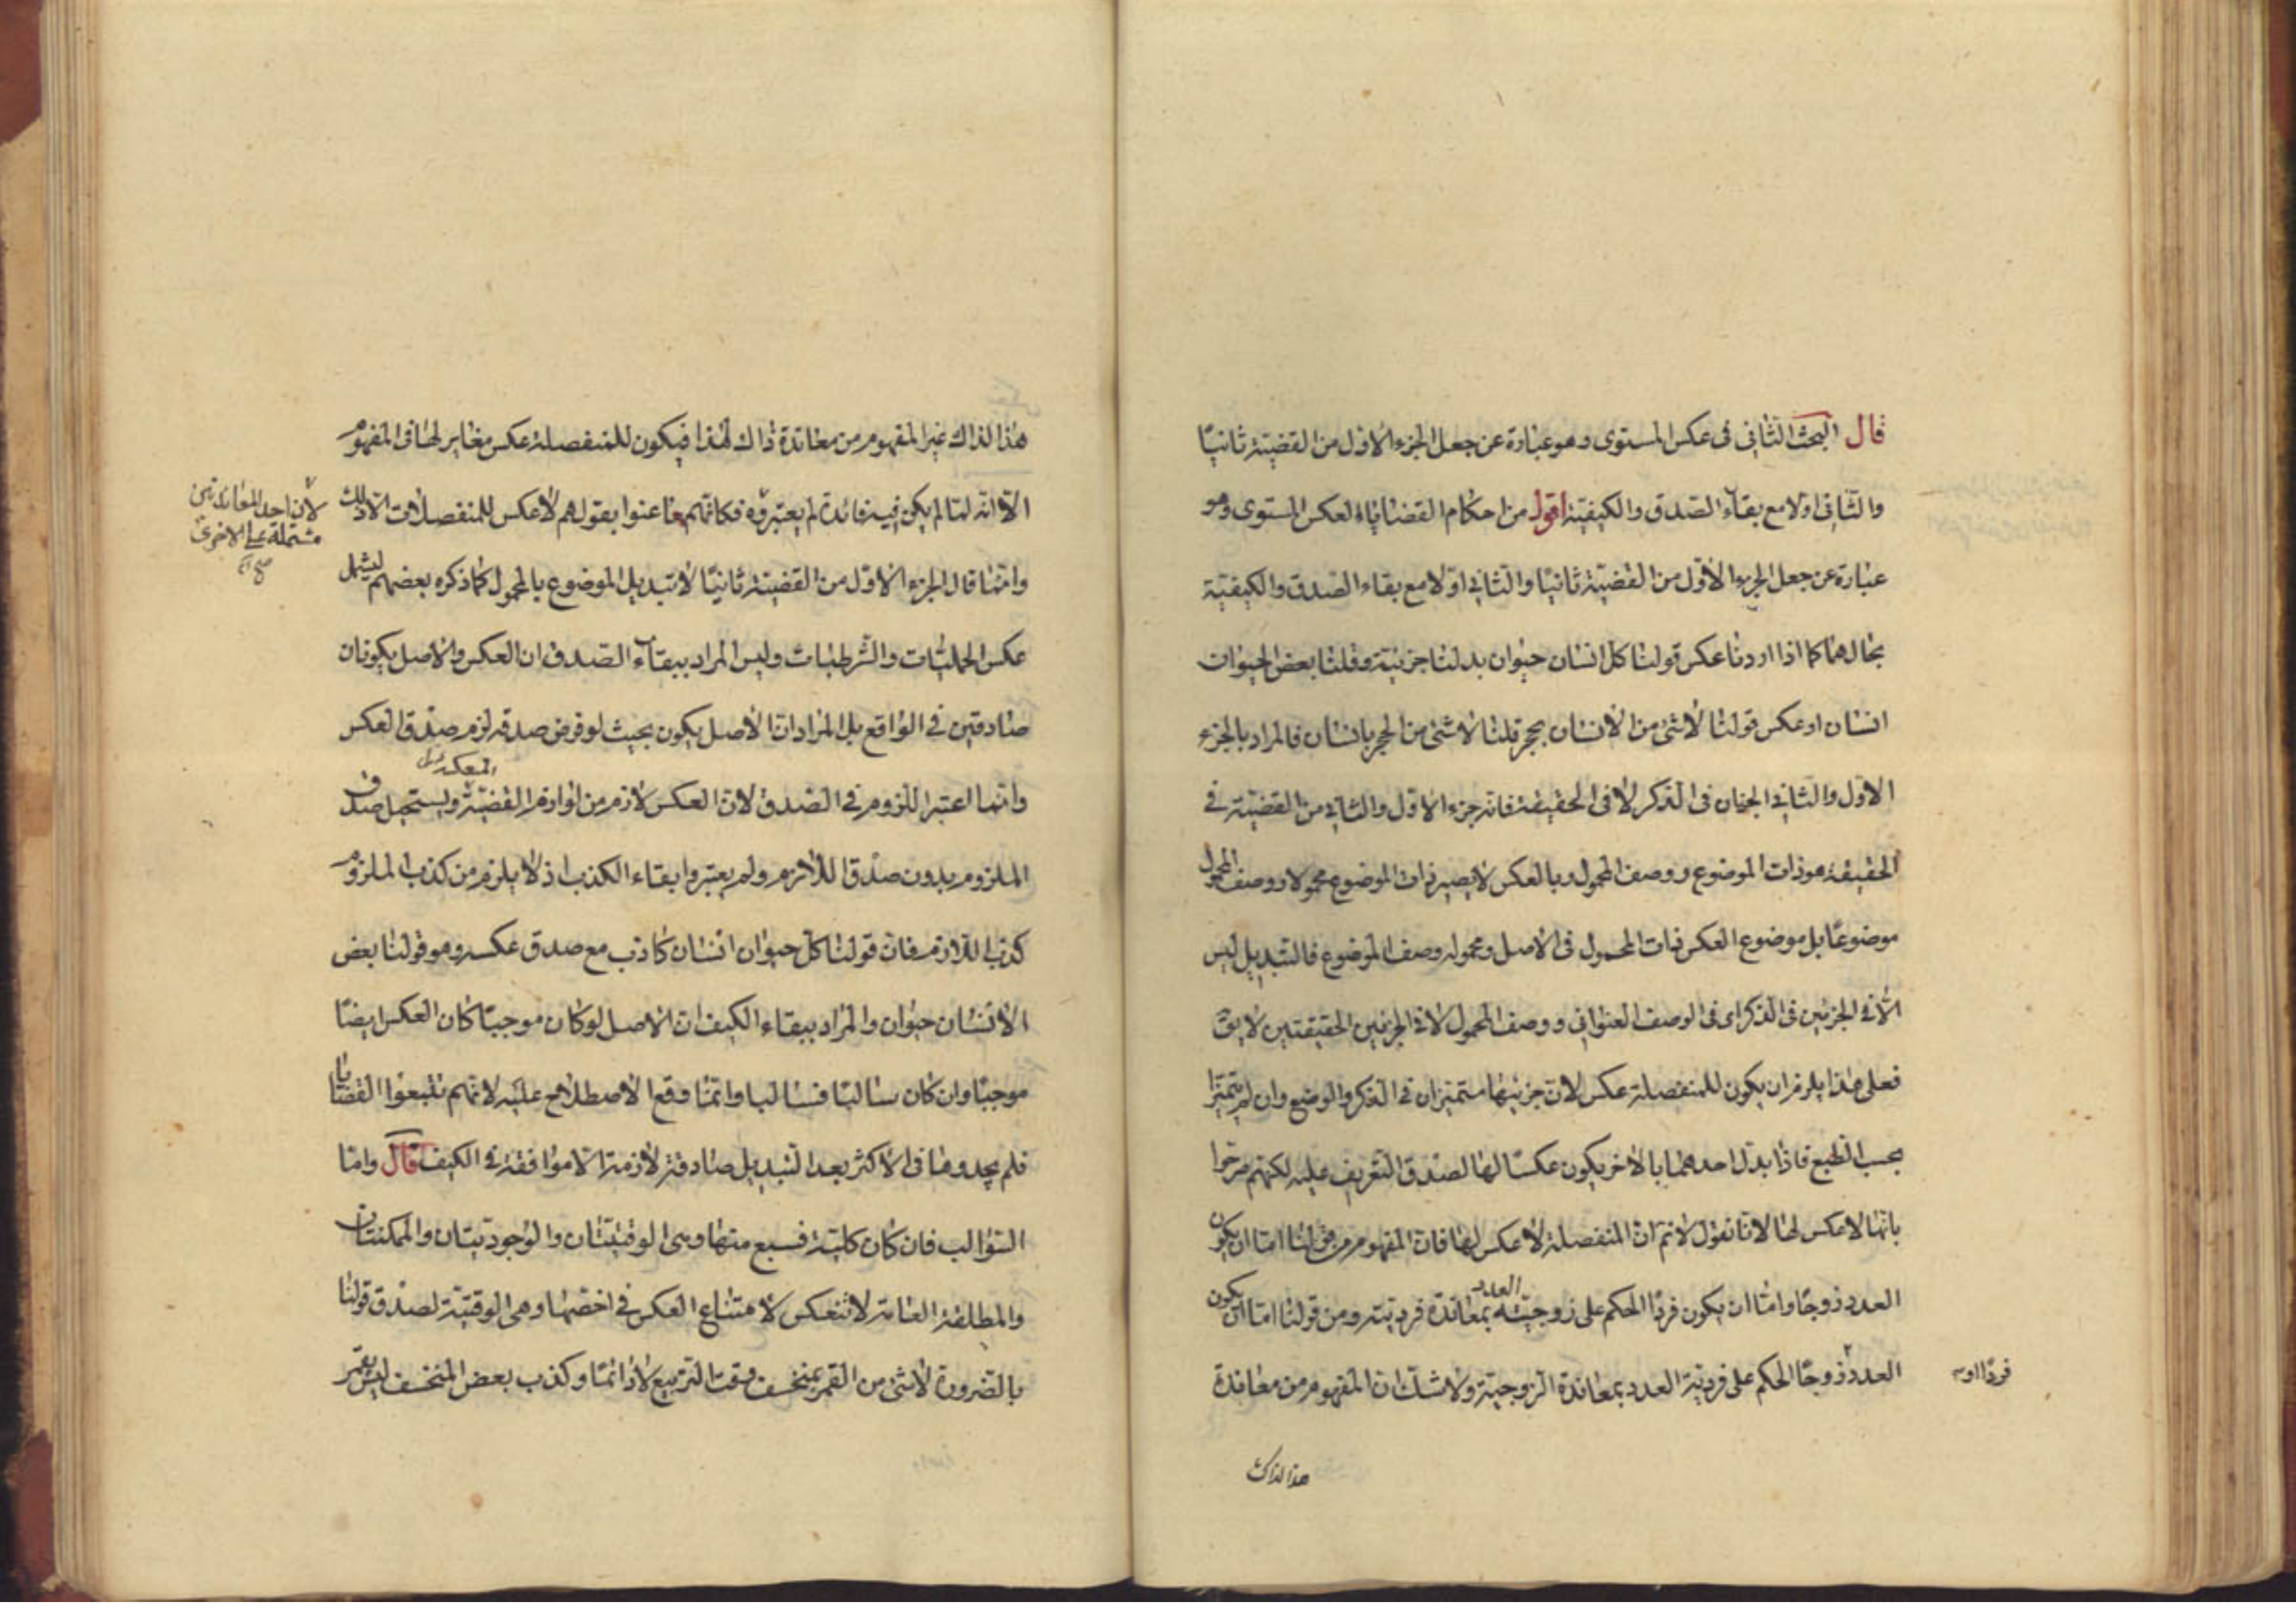 قال البحث الثاني في عكس المستوى وهو عبارة عن جعل الجزء الاول من القضية ثانيًا
والثاني اولا مع بقاء الصدق والكيفية اقول من احكام القضايا العكس المستوى وهو
عبارة عن جعل الجزء الاول من القضية ثانيًا والثاني اولا مع بقاء الصدق والكيفية
بحالهما كما اذا اردنا عكس قولنا كل انسان حيوان بدلنا جزئيته وقلنا بعض الحيوان
انسان او عكس قولنا لا شئ من الانسان بحجر قلنا لا شئ من الحجر بانسان فالمراد بالجزء
الاول والثاني الجزءان في الذكر لا في الحقيقة فان جزء الاول والثاني من القضية في
الحقيقة هو ذات الموضوع ووصف المحمول وبالعكس لا يصير ذات الموضوع محمولا ووصف المحمول
موضوعًا بل موضوع العكس ذات المحمول في الاصل ومحموله وصف الموضوع فالتبديل ليس
الا في الجزئين في الذكر اى في الوصف العنواني ووصف المحمول لا في الجزئين الحقيقتين لا يق
فعلى هذا يلزم ان يكون للمنفصلة عكس لان جزئيها متميزان في الذكر والوضع وان لم يتميزا
بحسب الطبع فاذا بدل احدهما بالاخر يكون عكسًا لها لصدق التعريف عليه لكنهم صرحوا
بانها لا عكس لها لانا نقول لا نم ان المنفصلة لا عكس لها فان المفهوم من قولنا اما ان يكون
العدد زوجًا واما ان يكون فردًا الحكم على زوجية العدد بمعاندة فرديته ومن قولنا اما ان يكون
العدد زوجًا الحكم على فردية العدد بمعاندة الزوجية ولا شك ان المفهوم من معاندة
فردًا او
هذا لذاك
هذا لذاك غير المفهوم من معاندة ذاك لهذا فيكون للمنفصلة عكس مغاير لها في المفهوم
الا انه لما لم يكن فيه فائدة لم يعتبروه فكانهم ما عنوا بقولهم لا عكس للمنفصلات الا ذلك
لان احد المعاندتين
مشتملة على الاخرى
صح
وانما قال الجزء الاول من القضية ثانيًا لا تبديل الموضوع بالمحمول كما ذكره بعضهم ليشمل
عكس الحمليات والشرطيات وليس المراد ببقاء الصدق ان العكس والاصل يكونان
صادقين في الواقع بل المراد ان الاصل يكون بحيث لو فرض صدقه لزم صدق العكس
وانما اعتبر اللزوم في الصدق لان العكس لازم من لوازم القضية ويستحيل صدق
الملزوم بدون صدق اللازم ولم يعتبروا بقاء الكذب اذ لا يلزم من كذب الملزوم
كذب اللازم فان قولنا كل حيوان انسان كاذب مع صدق عكسه وهو قولنا بعض
الانسان حيوان والمراد ببقاء الكيف ان الاصل لو كان موجبًا كان العكس ايضًا
موجبًا وان كان سالبًا فسالبا وانما وقع الاصطلاح عليه لانهم تتبعوا القضايا
فلم يجدوها في الاكثر بعد التبديل صادقة لازمة الا موافقة في الكيف قال واما
السوالب فان كان كلية فسبع منها وهى الوقتيتان والوجوديتان والممكنتان
والمطلقة العامة لا تنعكس لامتناع العكس في اخصها وهى الوقتية لصدق قولنا
بالضرورة لا شئ من القمر بمنخسف وقت التربيع لا دائمًا وكذب بعض المنخسف ليس بقمر